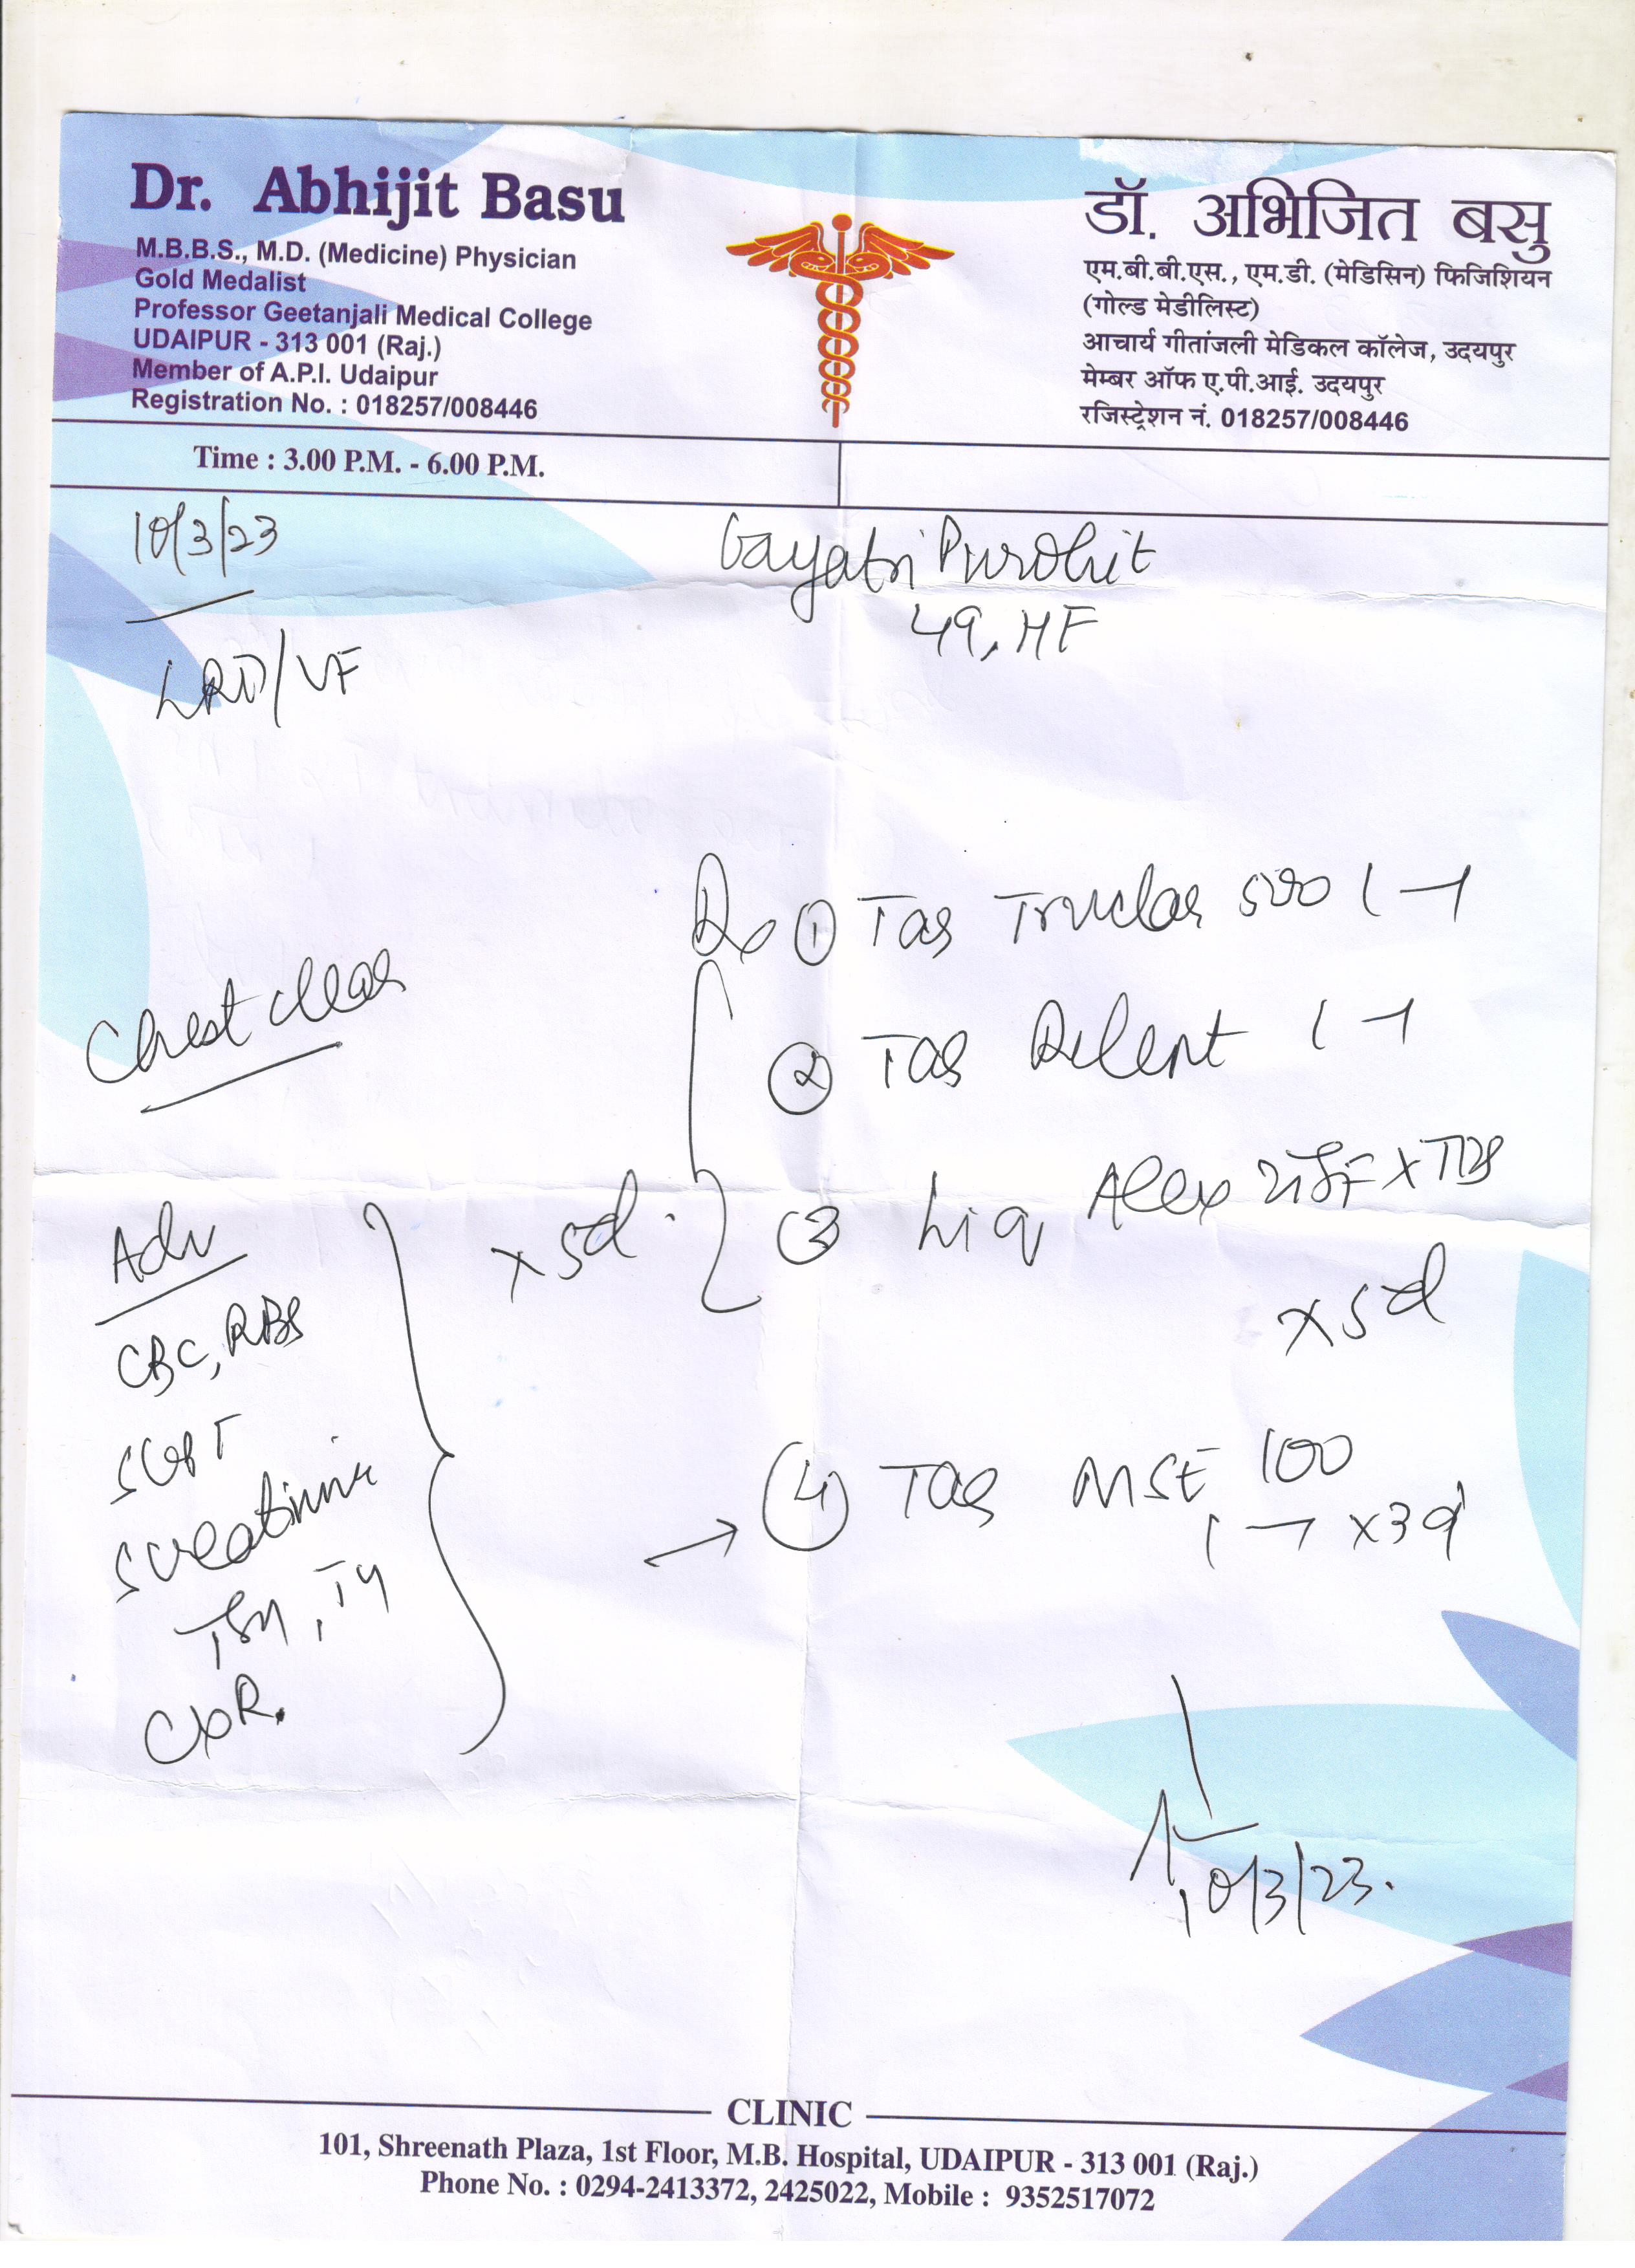 Dr. Abhijit Basu
M.B.B.S., M.D. (Medicine) Physician
Gold Medalist
Professor Geetanjali Medical College
UDAIPUR - 313 001 (Raj.)
Member of A.P.I. Udaipur
Registration No. : 018257/008446
डॉ. अभिजित बसु
एम.बी.बी.एस., एम.डी. (मेडिसिन) फिजिशियन
(गोल्ड मेडीलिस्ट)
आचार्य गीतांजली मेडिकल कॉलेज, उदयपुर
मेम्बर ऑफ ए.पी.आई. उदयपुर
रजिस्ट्रेशन नं. 018257/008446
Time : 3.00 P.M. - 6.00 P.M.
10/3/23
Gayatri Purohit
49, HF
Chest clear
Adv
CBC, RBS
SGPT
S creatinine
TSH, T4
CXR.
Rx ① Tab 500 1 - 1
② Tab Relent 1 - 1
③ Liq Alex x TDS
x 5d
x 5d
→ ④ Tab 100
1 - 1 x 3d
10/3/23.
CLINIC
101, Shreenath Plaza, 1st Floor, M.B. Hospital, UDAIPUR - 313 001 (Raj.)
Phone No. : 0294-2413372, 2425022, Mobile : 9352517072